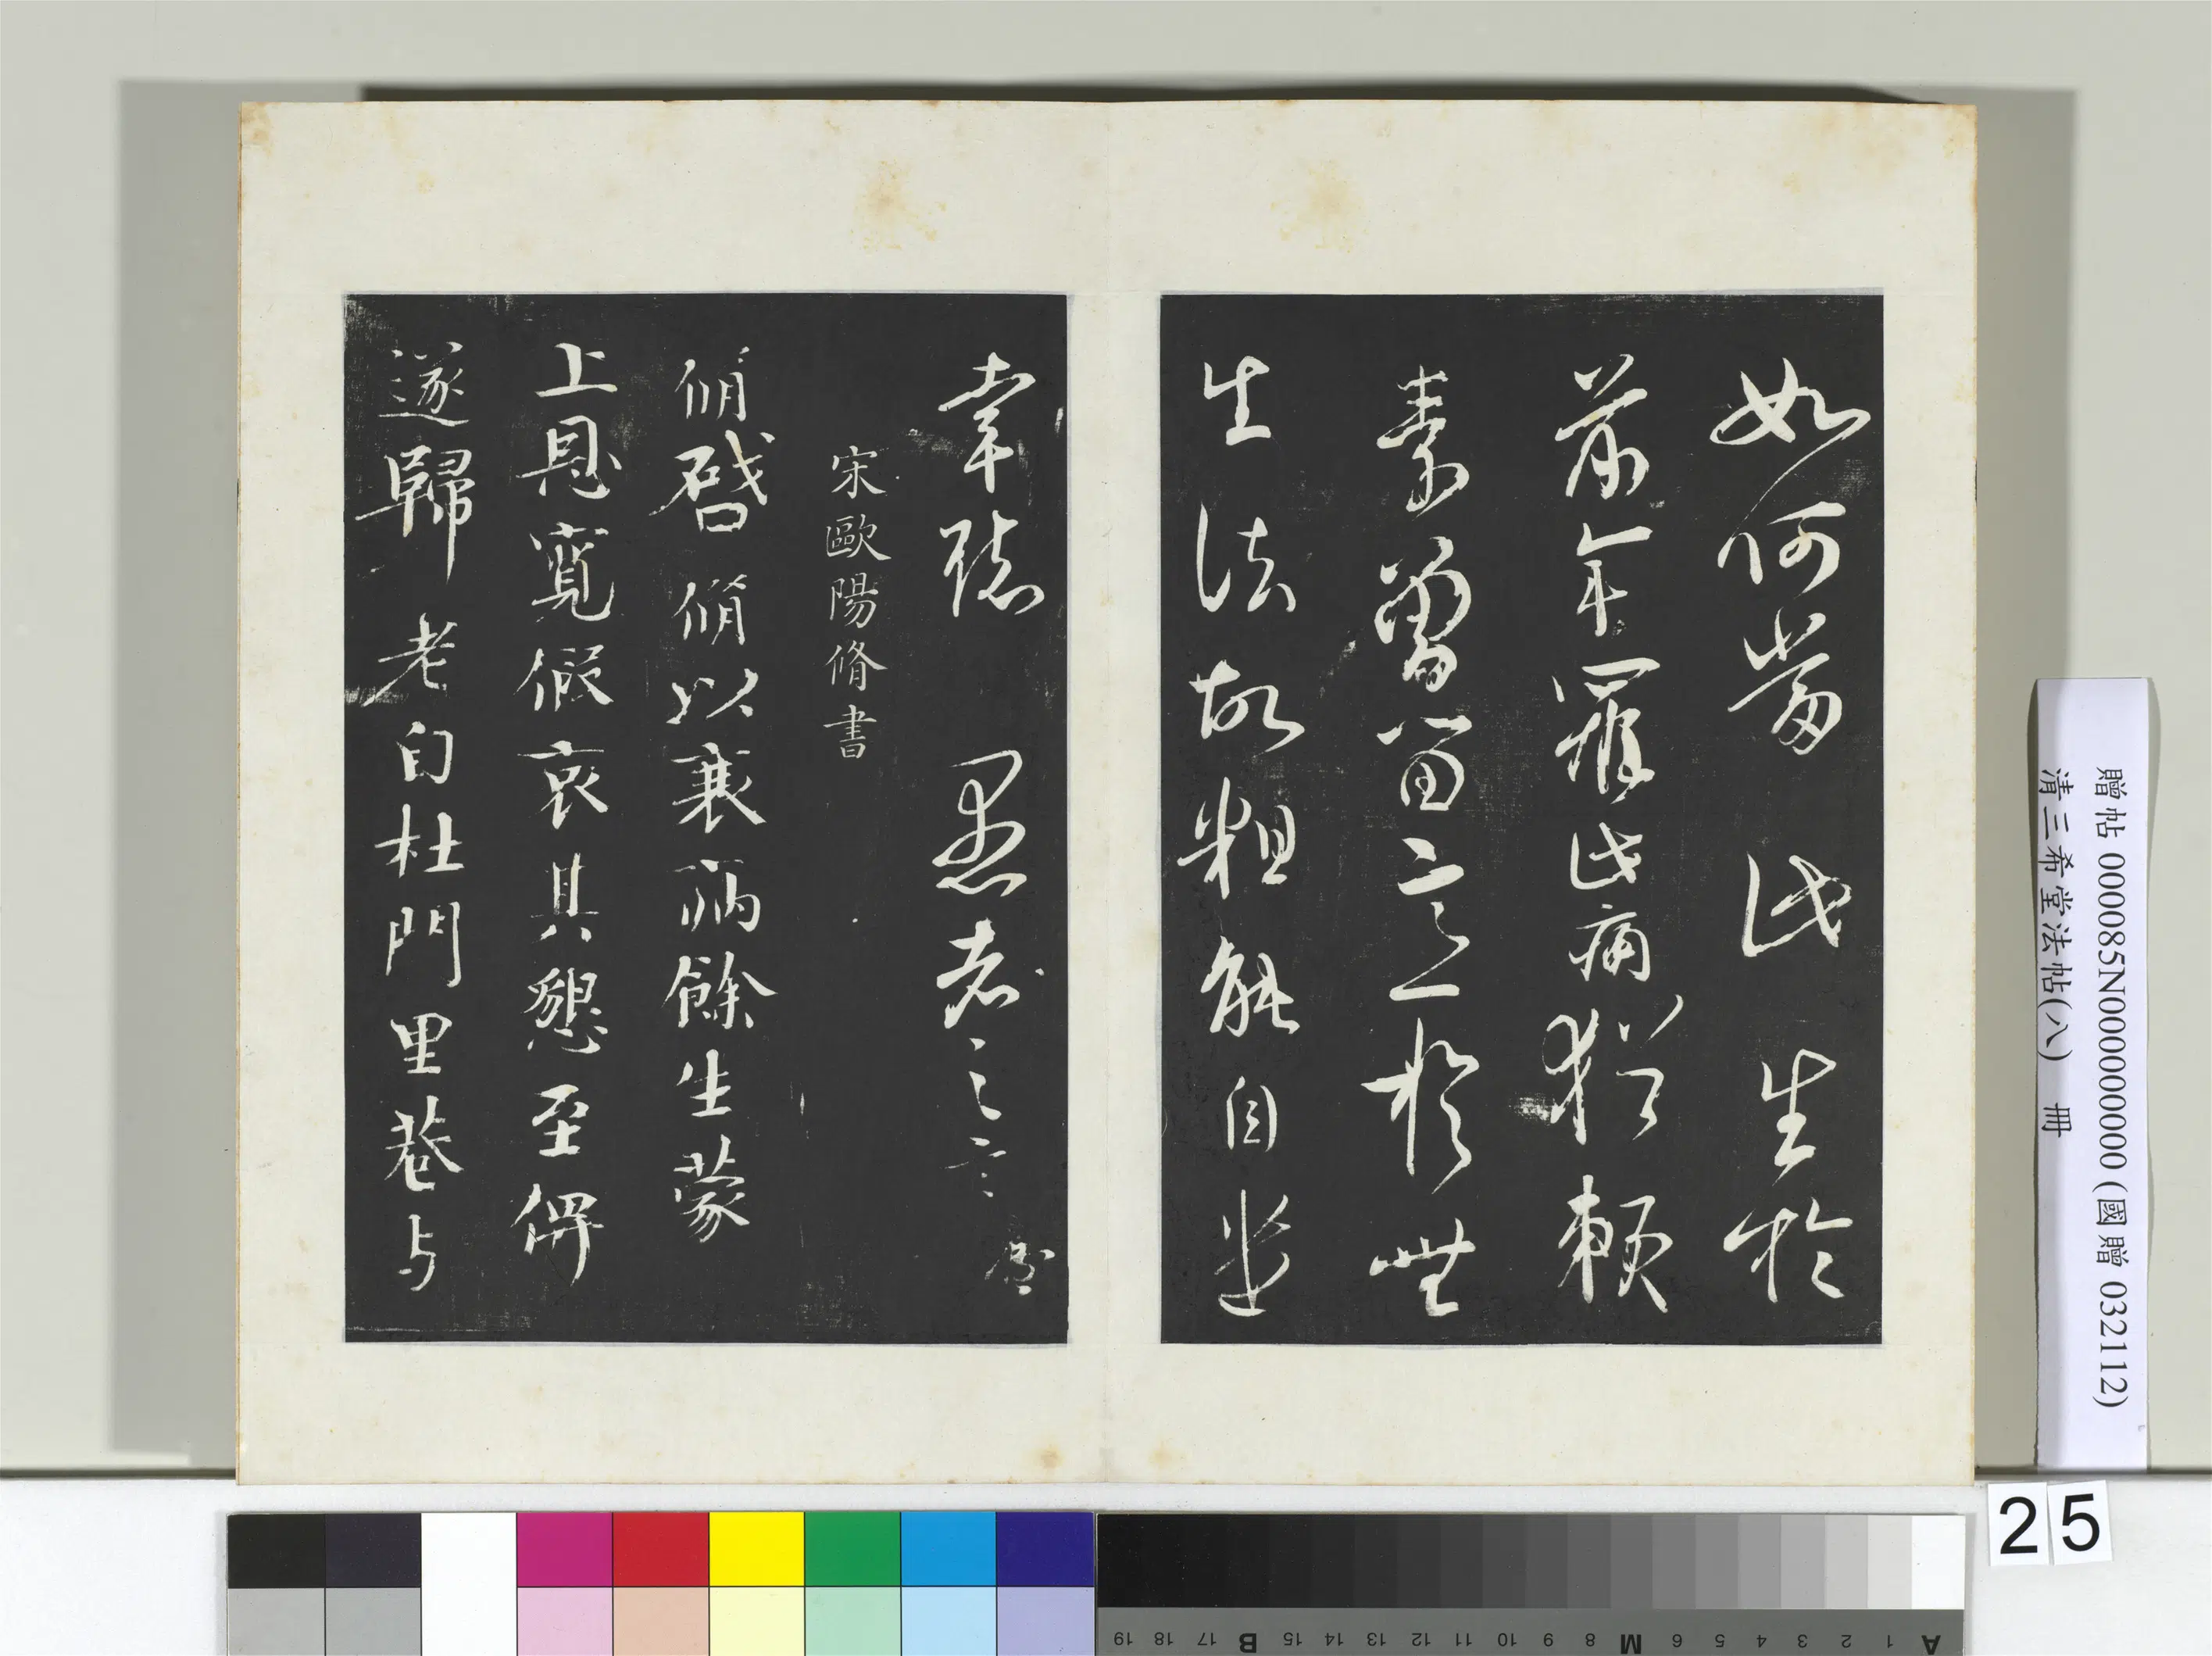 如何當此生於
前年罹此痛猶賴
素曾留意於無
生法故粗能自遣
幸聽愚者之言
宋歐陽脩書
脩啓脩以衰病餘生蒙
上恩寬假哀其懇至俾
遂歸老自杜門里巷与
贈帖 000085N000000000 (國贈 032112)
清三希堂法帖(八) 冊
25
A 1 2 3 4 5 6 M 8 9 10 11 12 13 14 15 B 17 18 19